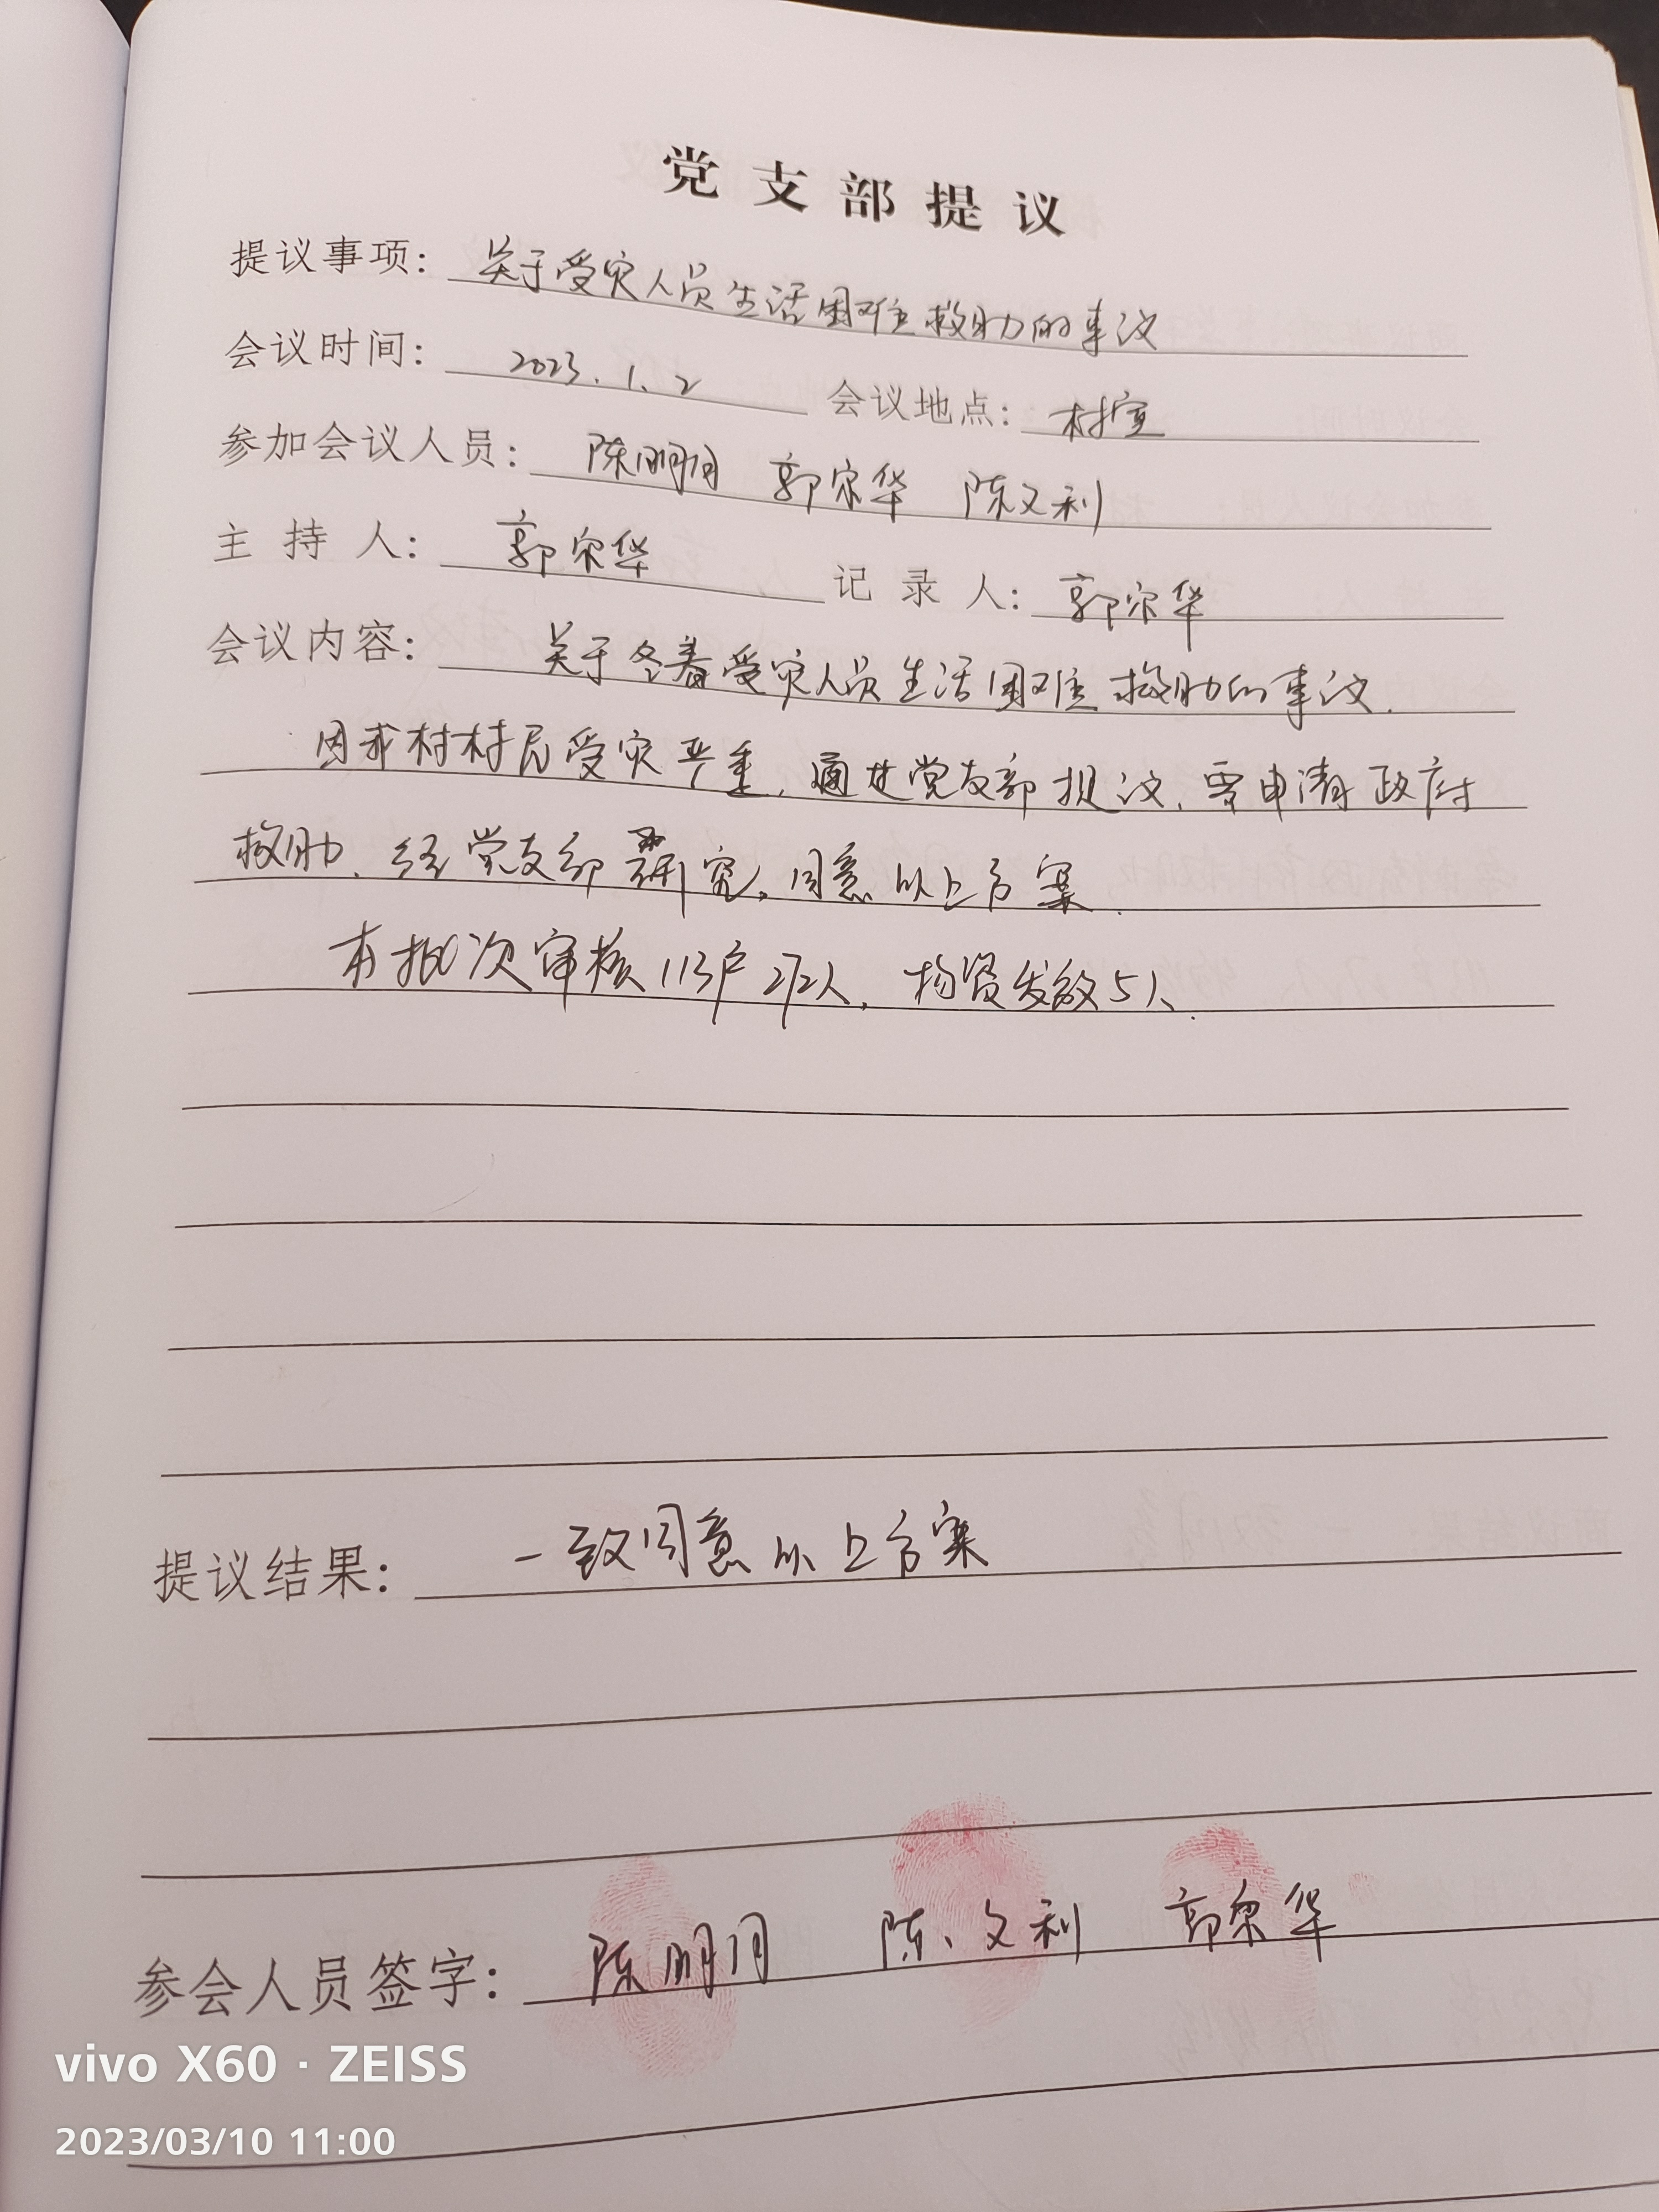 党支部提议
提议事项: 关于受灾人员生活困难救助的事议
会议时间: 2023.1.2 会议地点: 村室
参加会议人员: 陈明月 郭宗华 陈文利
主持人: 郭宗华 记录人: 郭宗华
会议内容: 关于冬春受灾人员生活困难救助的事议.
因我村村民受灾严重, 通过党支部提议, 要申请政府
救助. 经党支部研究, 同意以上方案.
本批次审核113户272人, 物资发放5人.
提议结果: 一致同意以上方案
参会人员签字: 陈明月 陈文利 郭宗华
vivo X60 · ZEISS
2023/03/10 11:00